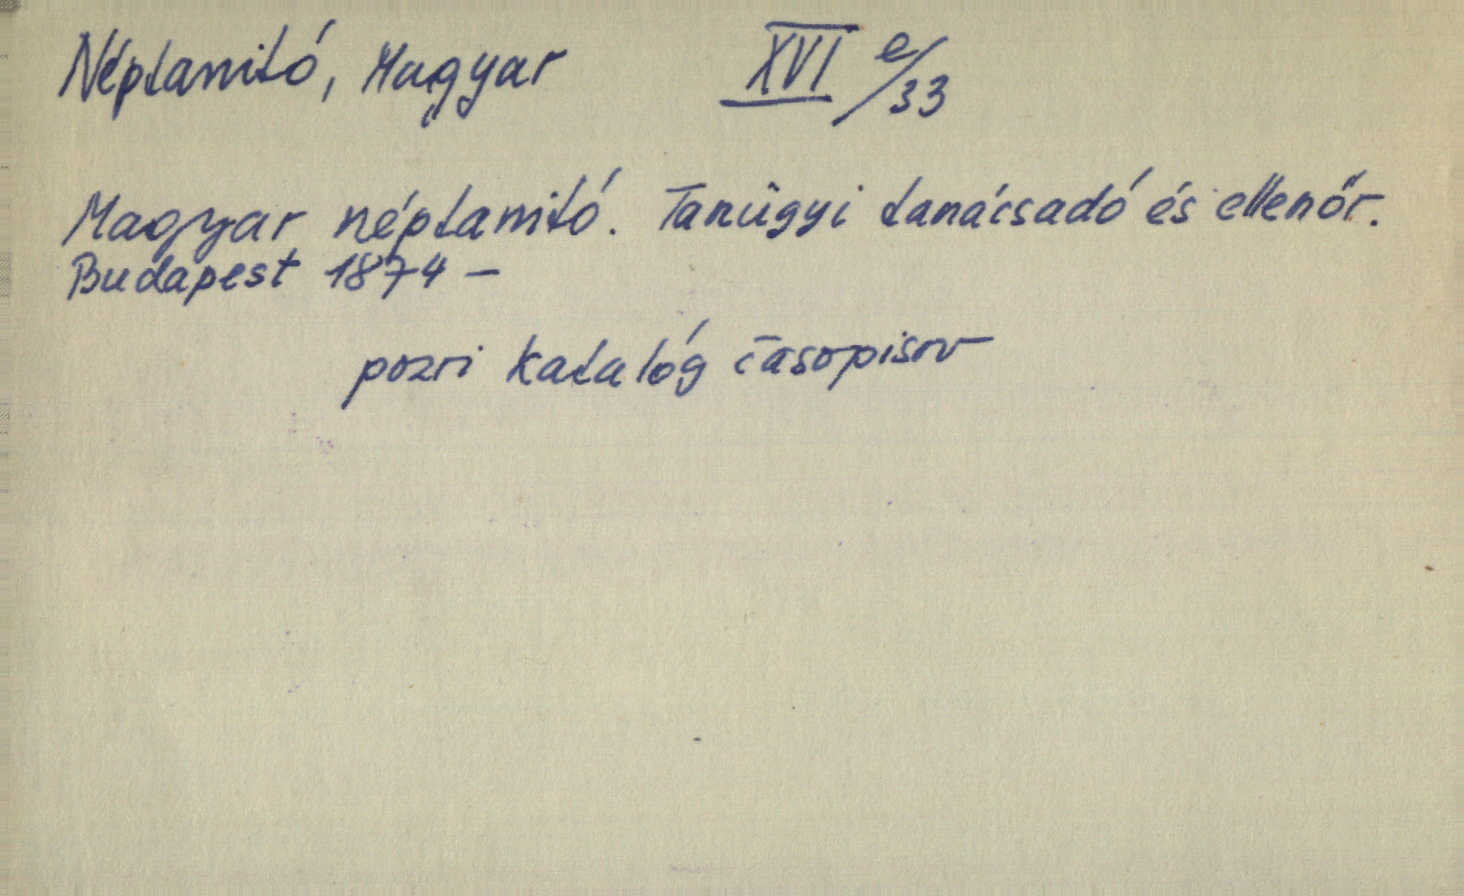 Néptanitó, Magyar XVI e/33
Magyar néptanitó. Tanügyi tanácsadó és ellenőr.
Budapest 1874 –
pozri katalóg časopisov